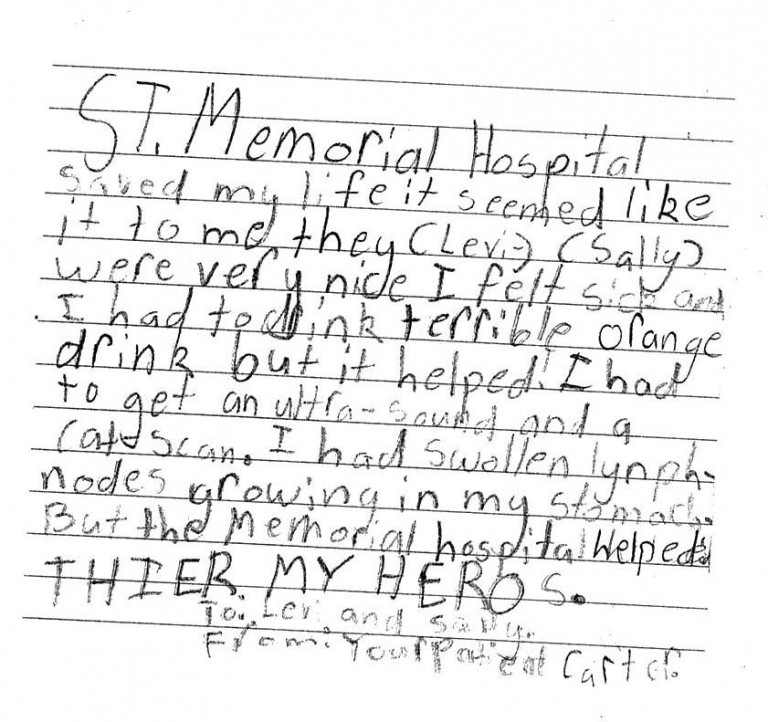 ST. Memorial Hospital
saved my life it seemed like
it to me they (Levi) (Sally)
were very nice I felt sick and
I had to drink terrible orange
drink but it helped. I had
to get an ultra-sound and a
Cat-Scan. I had swollen lynph-
nodes growing in my stomach.
But the Memorial hospital Helped.
THIER MY HEROS.
To: Levi and Sally.
From: Your Patient Carter.